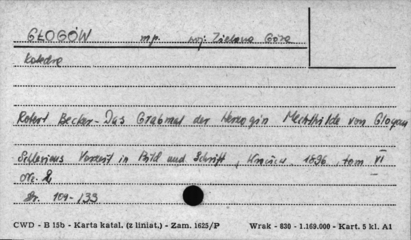 GŁOGÓW mp. woj. Zielona Góra
katedra
Robert Becker - Das Grabmal der Herzogin Mechthilde von Glogau
Schlesiens Vorzeit in Bild und Schrift, 1896, tom VI
Str. 101-133
CWD - B 15b - Karta katal. (z liniat.) - Zam. 1625/P Wrak - 830 - 1.169.000 - Kart. 5 kl. A1